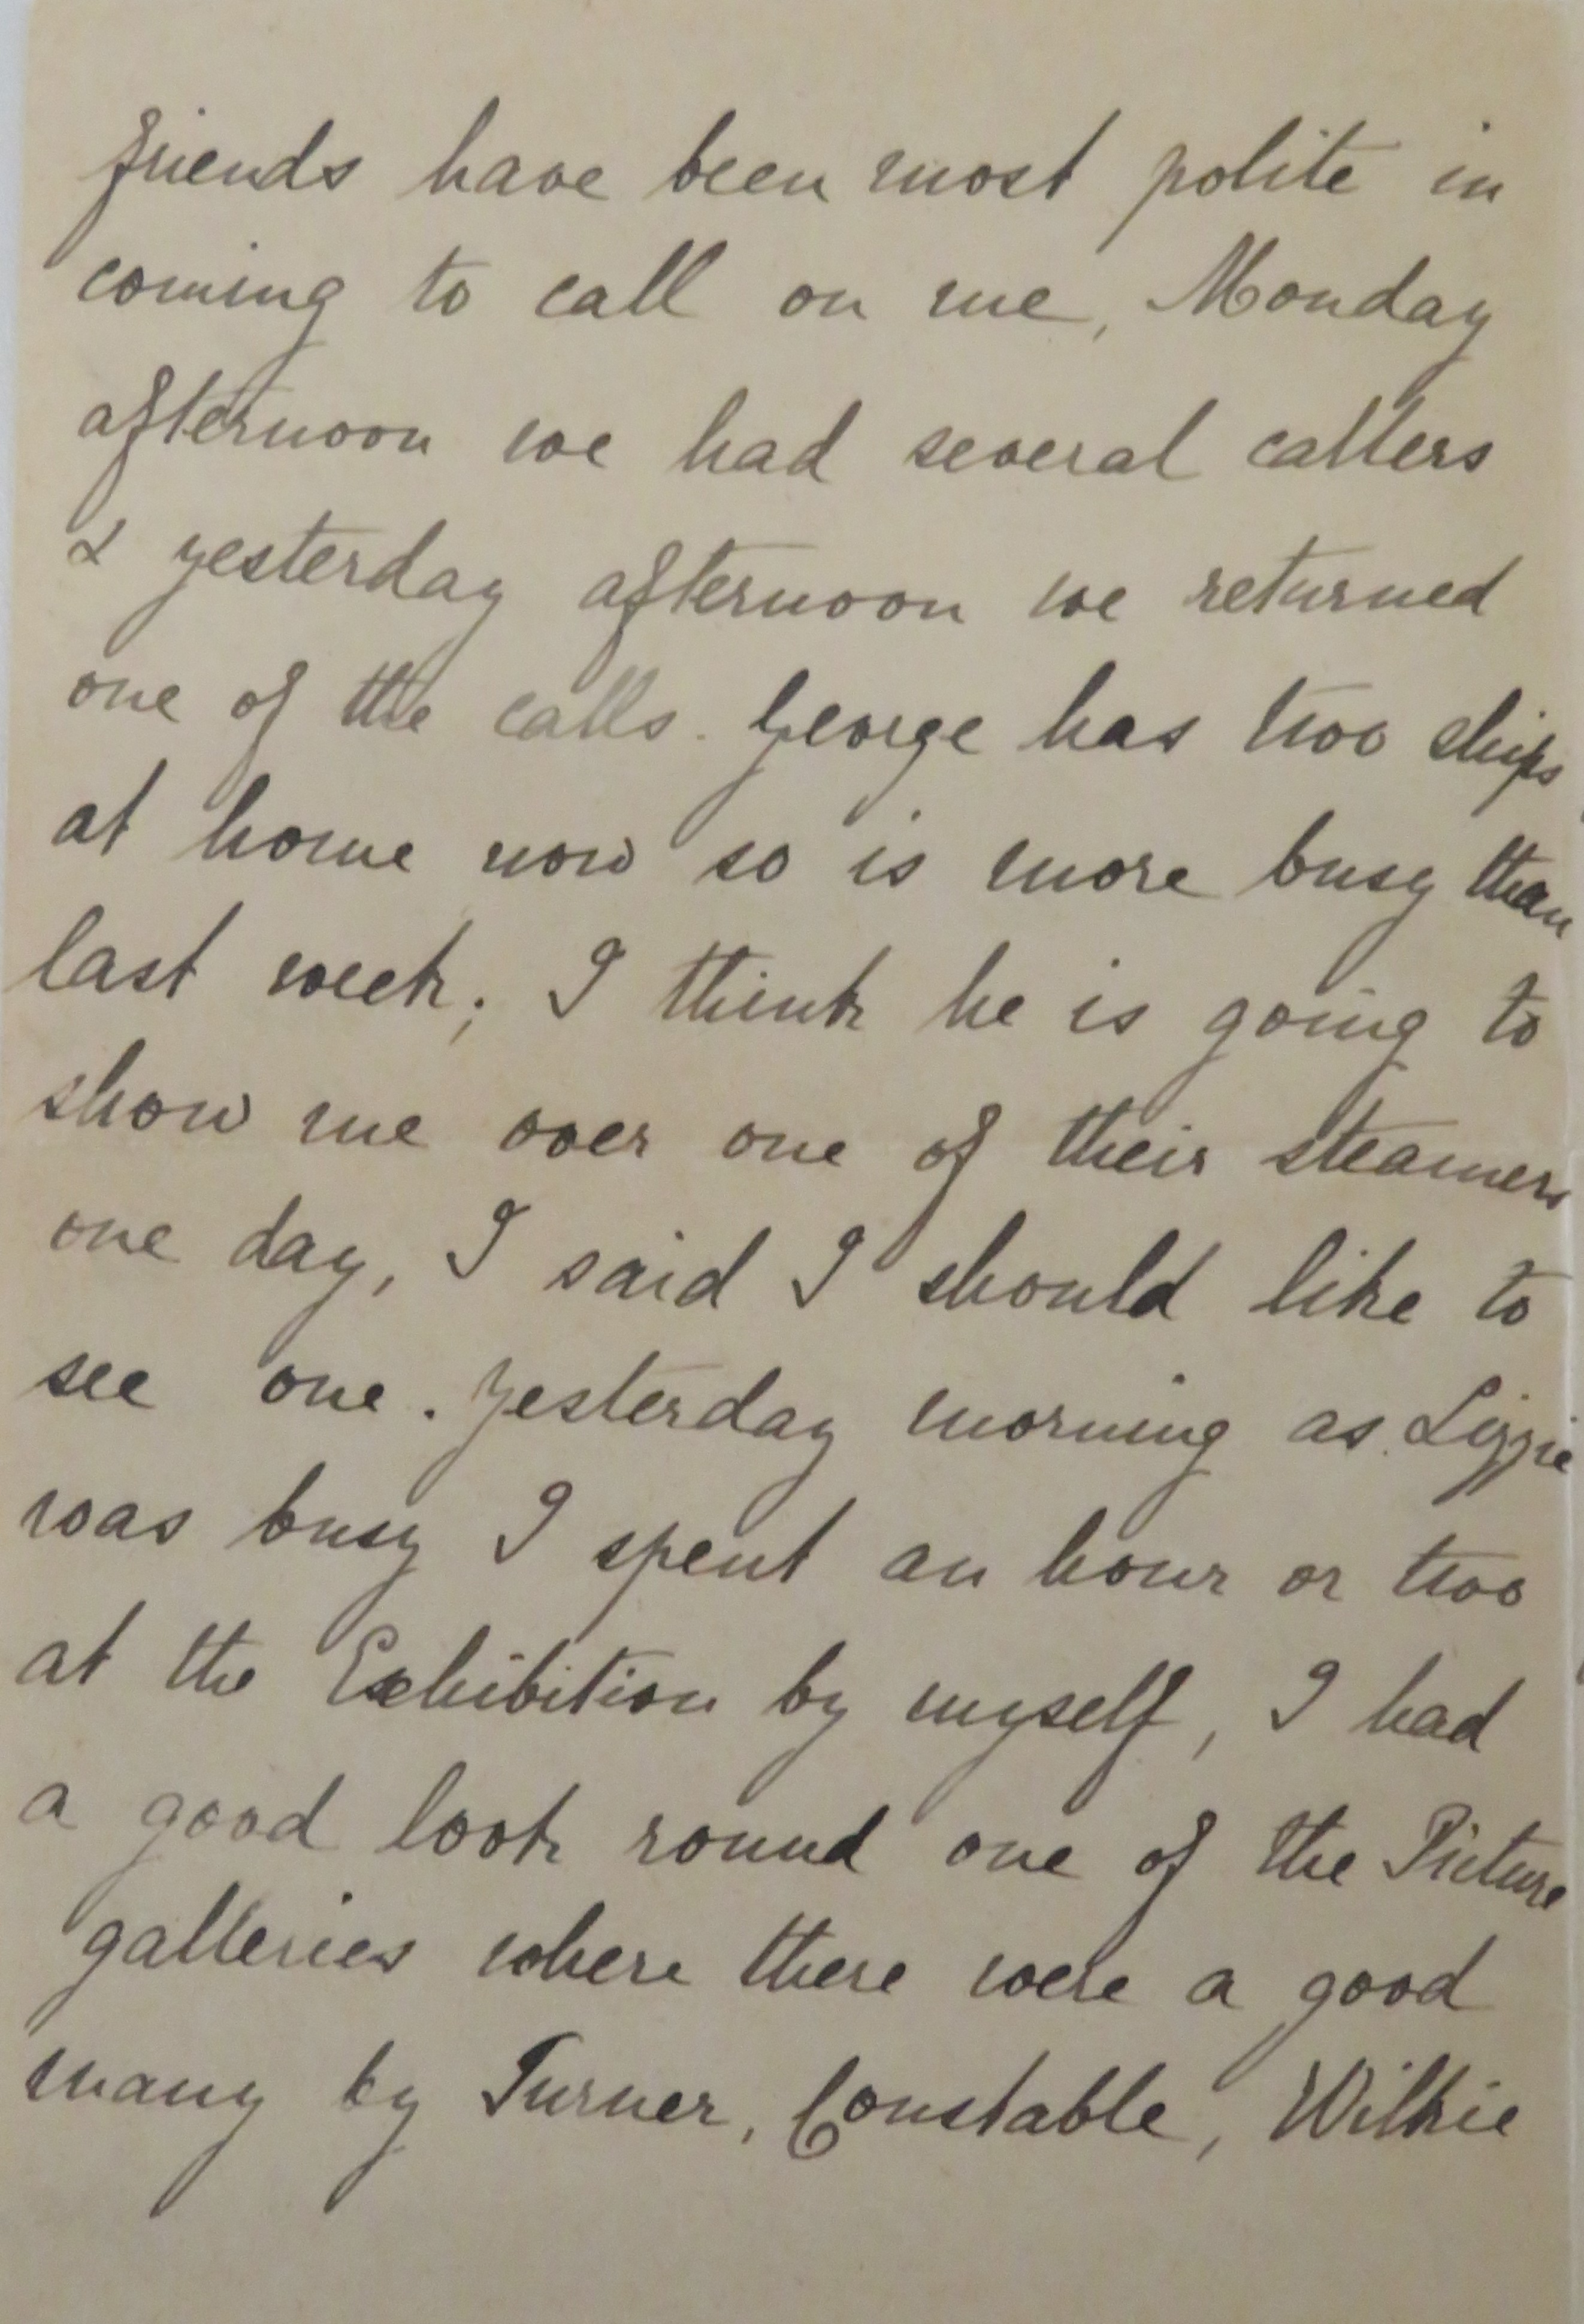 friends have been most polite in
coming to call on me, Monday
afternoon we had several callers
& yesterday afternoon we returned
one of the calls. George has two ships
at home now so is more busy than
last week; I think he is going to
show me over one of their steamers
one day, I said I should like to
see one. Yesterday morning as Lizzie
was busy I spent an hour or two
at the Exhibition by myself, I had
a good look round one of the Picture
galleries where there were a good
many by Turner, Constable, Wilkie